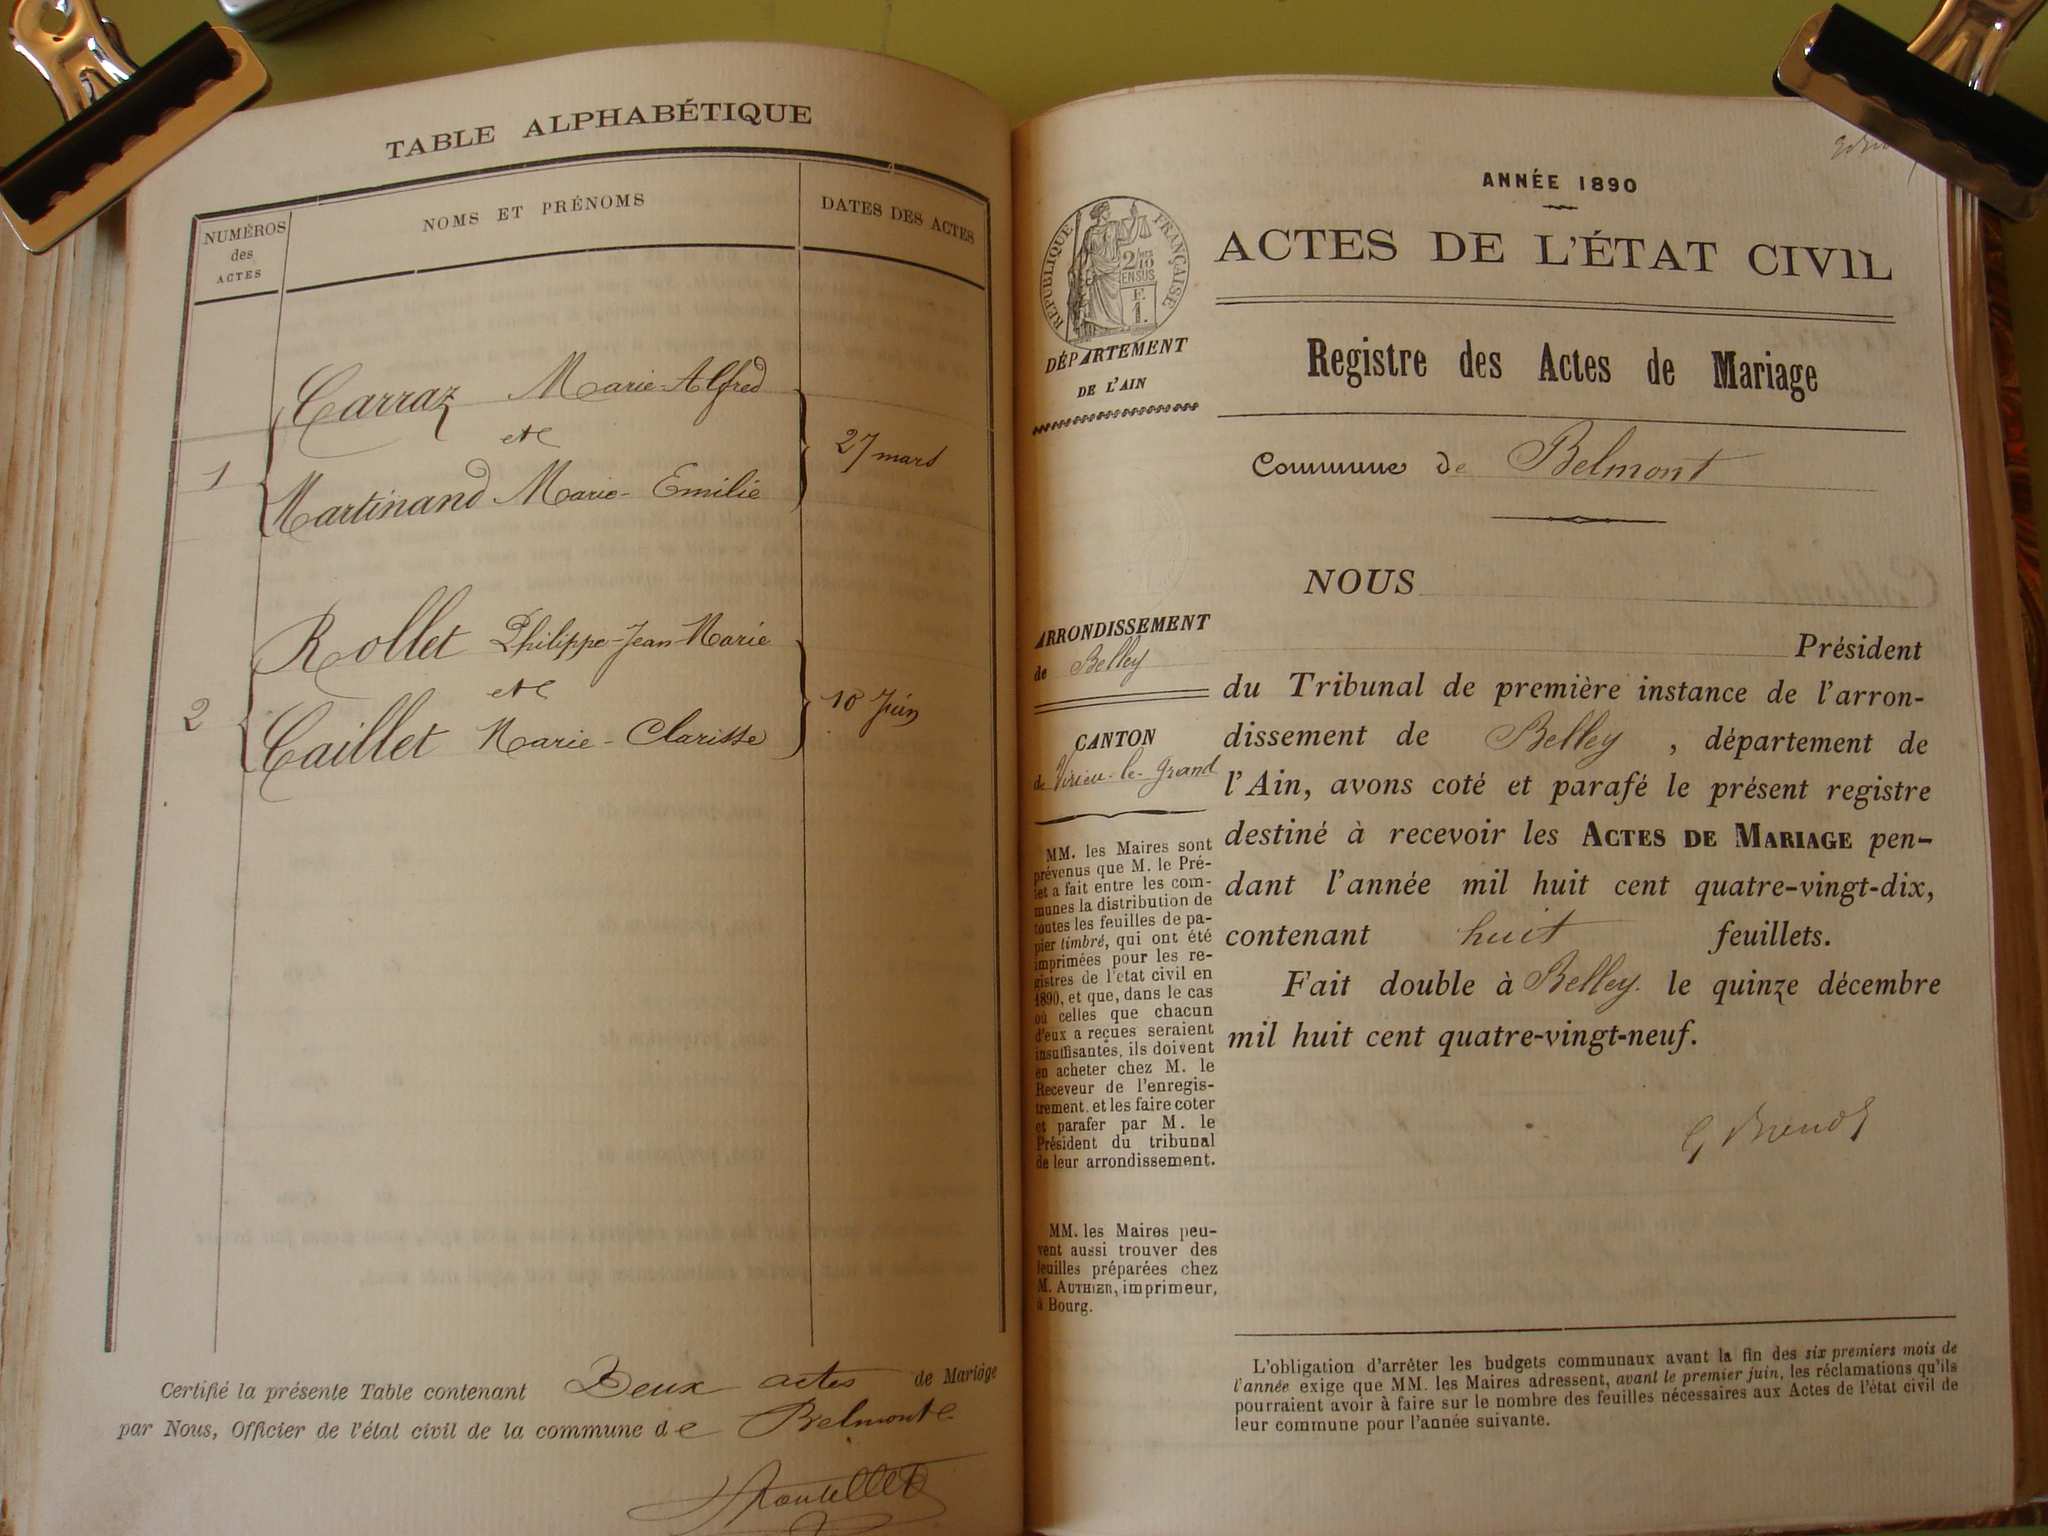 TABLE ALPHABÉTIQUE
NUMÉROS
des
ACTES
NOMS ET PRÉNOMS
DATES DES ACTES
Carraz Marie-Alfred
et
1
27 mars
Martinand Marie-Emilie
Rollet Philippe-Jean-Marie
et
2
10 Juin
Caillet Marie-Clarisse
Certifié la présente Table contenant Deux actes de Mariage
par Nous, Officier de l'état civil de la commune de Belmont
ANNÉE 1890
RÉPUBLIQUE FRANÇAISE
2/10
EN SUS
E
1.
ACTES DE L'ÉTAT CIVIL
DÉPARTEMENT
DE L'AIN
Registre des Actes de Mariage
Commune de Belmont
NOUS
ARRONDISSEMENT
de Belley
CANTON
de Virieu-le-Grand
MM. les Maires sont
prévenus que M. le Pré-
fet a fait entre les com-
munes la distribution de
toutes les feuilles de pa-
pier timbré, qui ont été
imprimées pour les re-
gistres de l'état civil en
1890, et que, dans le cas
où celles que chacun
d'eux a reçues seraient
insuffisantes, ils doivent
en acheter chez M. le
Receveur de l'enregis-
trement, et les faire coter
et parafer par M. le
Président du tribunal
de leur arrondissement.
MM. les Maires peu-
vent aussi trouver des
feuilles préparées chez
M. AUTHIER, imprimeur,
à Bourg.
Président
du Tribunal de première instance de l'arron-
dissement de Belley, département de
l'Ain, avons coté et parafé le présent registre
destiné à recevoir les ACTES DE MARIAGE pen-
dant l'année mil huit cent quatre-vingt-dix,
contenant huit feuillets.
Fait double à Belley. le quinze décembre
mil huit cent quatre-vingt-neuf.
L'obligation d'arrêter les budgets communaux avant la fin des six premiers mois de
l'année exige que MM. les Maires adressent, avant le premier juin, les réclamations qu'ils
pourraient avoir à faire sur le nombre des feuilles nécessaires aux Actes de l'état civil de
leur commune pour l'année suivante.